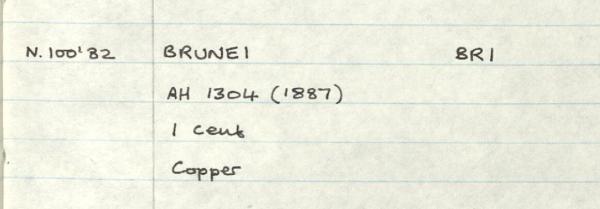 N.100'82 BRUNEI BRI
AH 1304 (1887)
1 cent
Copper